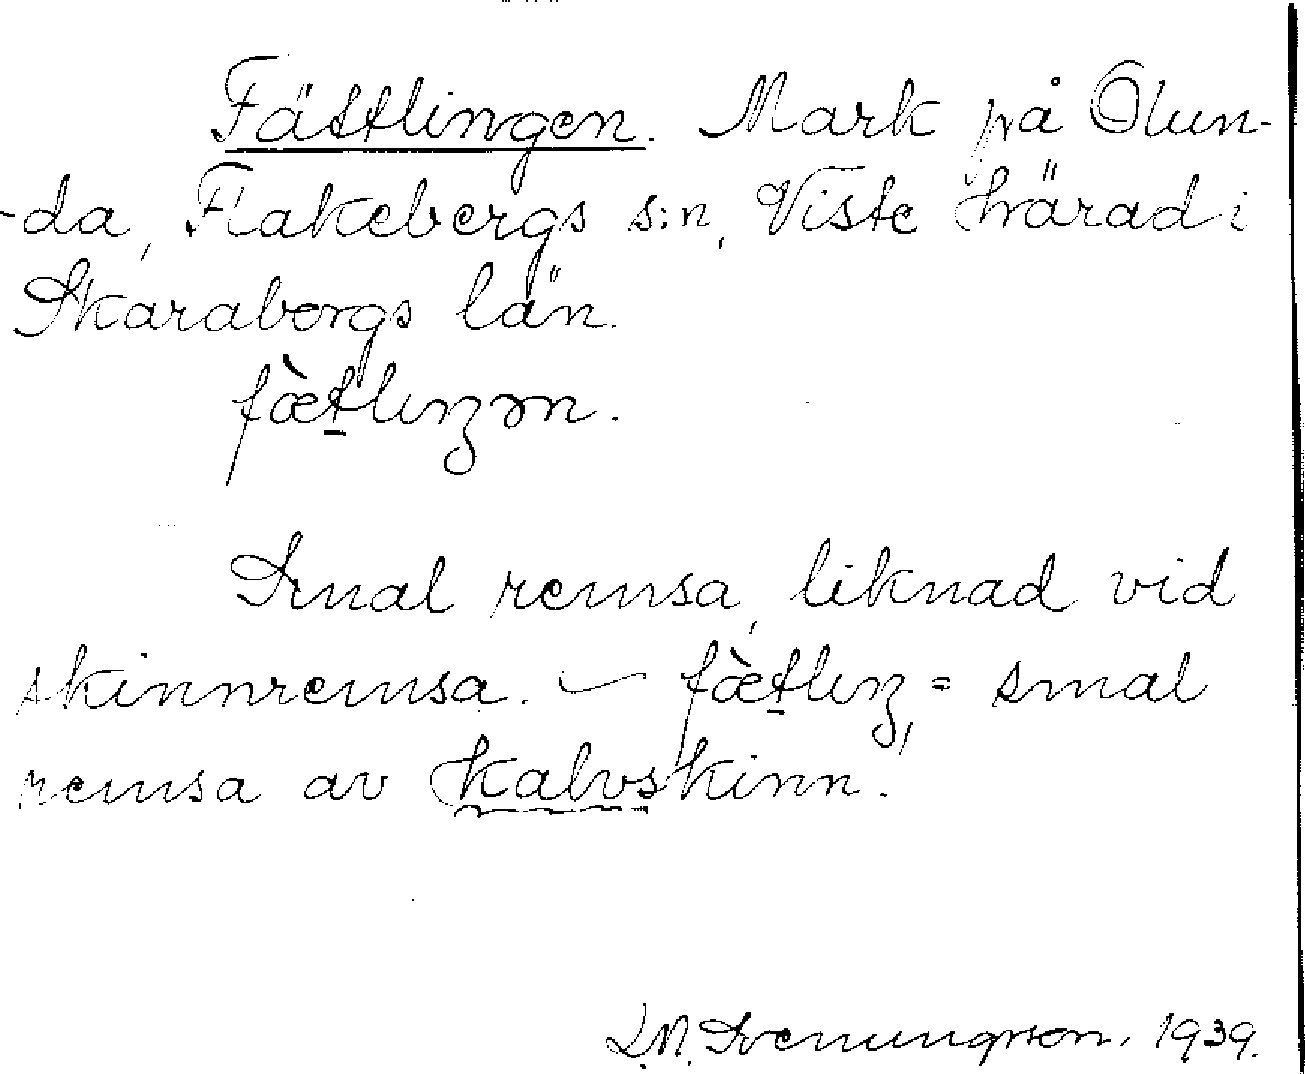 Fättlingen. Mark på Ölun-
-da, Flakebergs s:n, Viste härad i
Skaraborgs län.
fæ̀tlɩŋən.
Smal remsa, liknad vid
skinnremsa. – fæ̀tlɩŋ, = smal
remsa av kalvskinn.
1939.